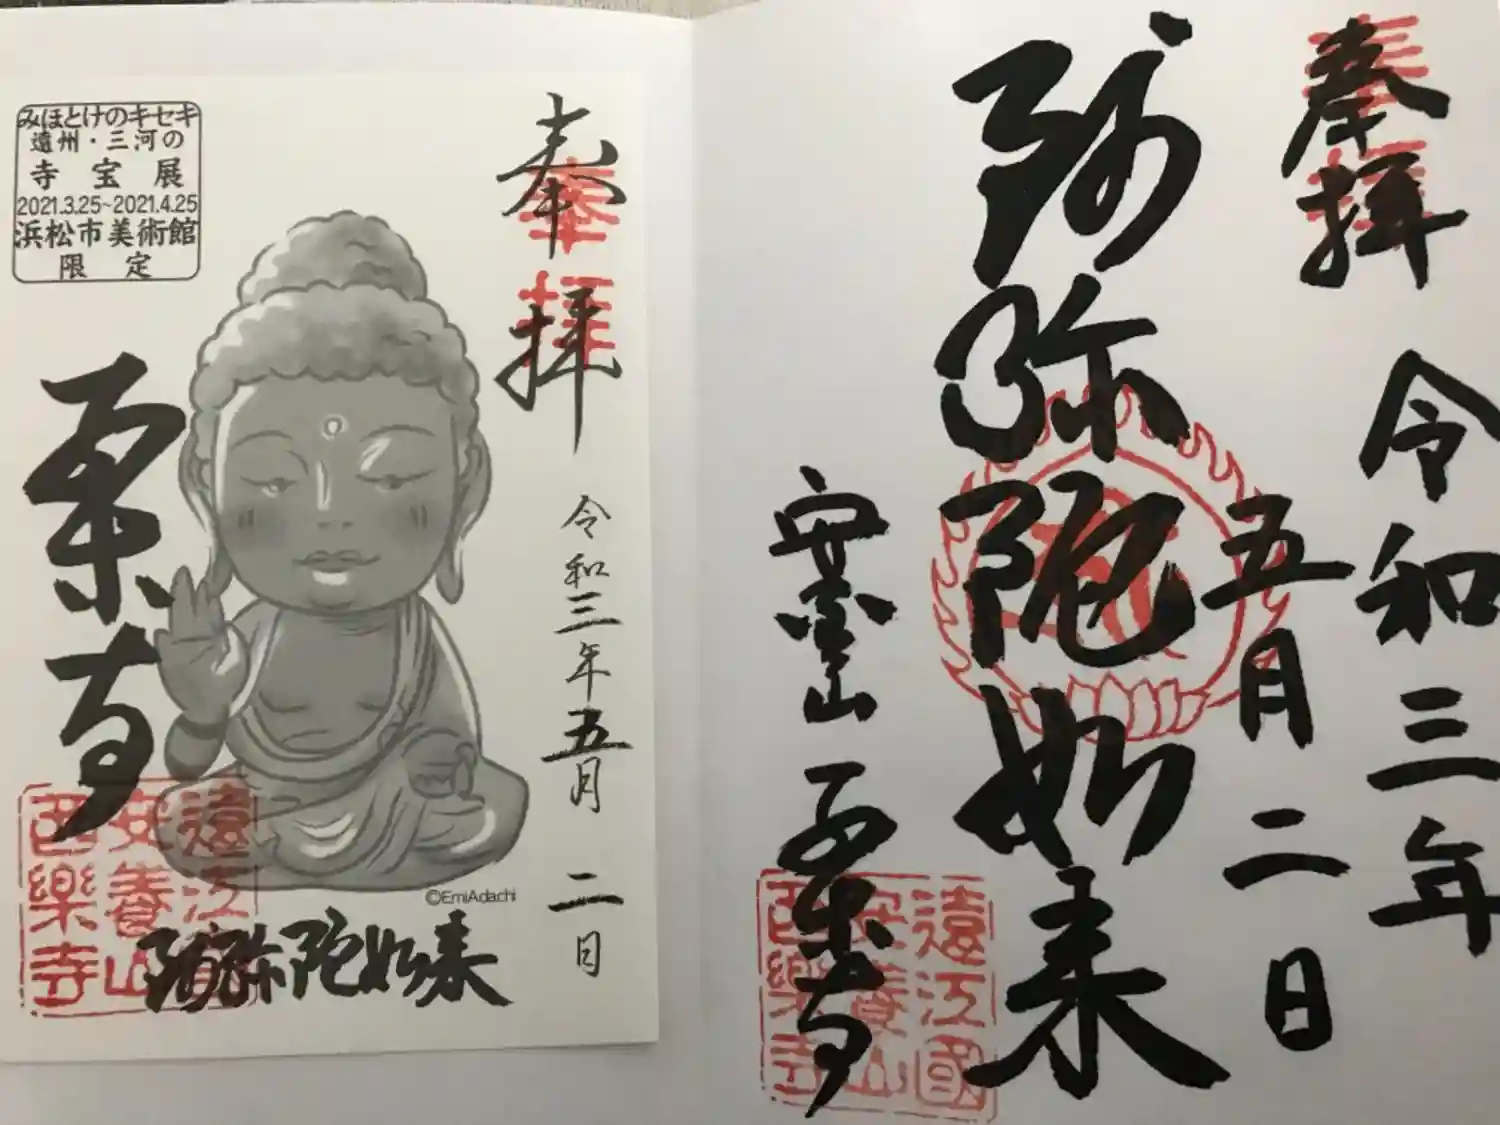 奉拝
令和三年
五月二日
阿弥陀如来
安養山
西楽寺
遠江國
安養山
西樂寺
奉拝
令和三年五月二日
みほとけのキセキ
遠州・三河の
寺宝展
2021.3.25~2021.4.25
浜松市美術館
限定
西楽寺
遠江國
安養山
西樂寺
©EmiAdachi
阿弥陀如来